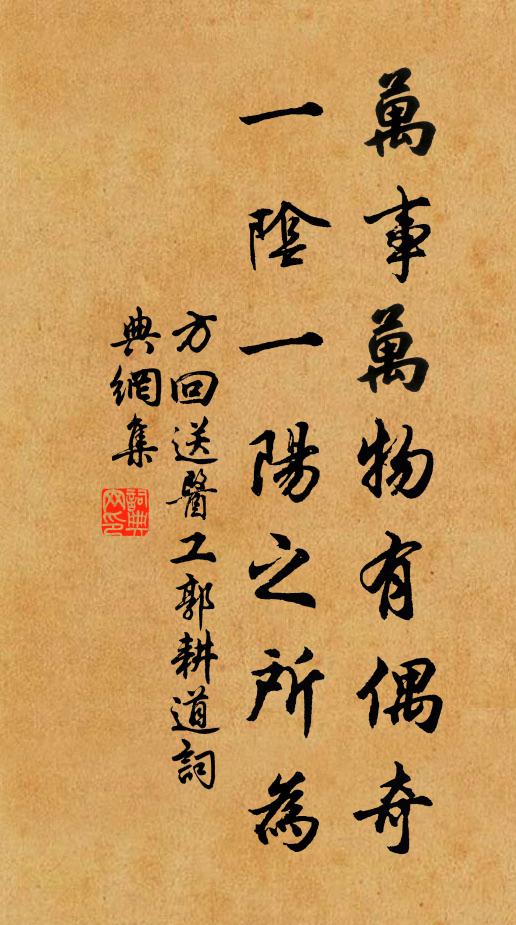 萬事萬物有偶奇
一陰一陽之所為
方回送醫工郭耕道詞
典網集
詞典
网印